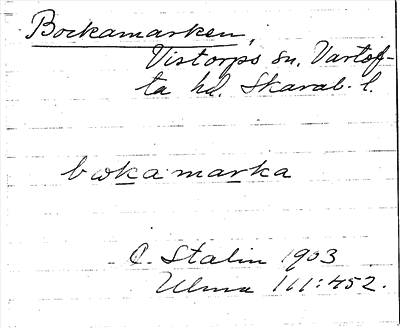 Bockamarken,
Vistorps sn, Vartof-
ta hd. Skarab. l.
bωkamarka
C. Stalin 1903
Ulma 111:452.